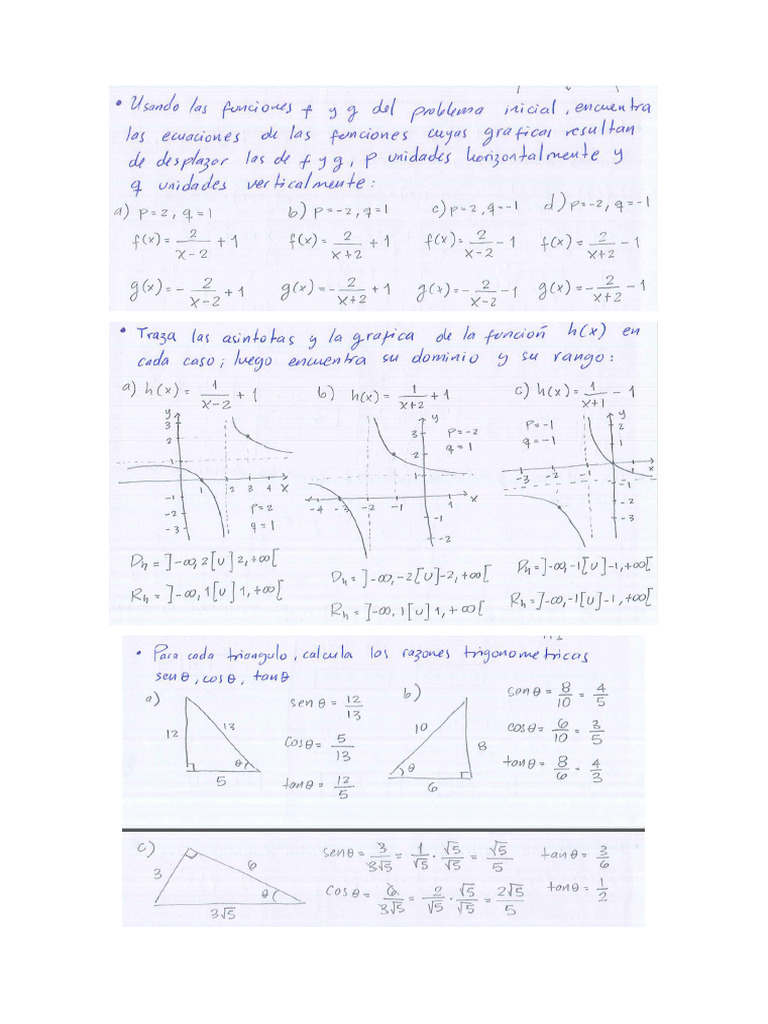 • Usando las funciones f y g del problema inicial, encuentra
las ecuaciones de las funciones cuyas graficas resultan
de desplazar las de f y g, p unidades horizontalmente y
q unidades verticalmente:
a) p=2, q=1 b) p=-2, q=1 c) p=2, q=-1 d) p=-2, q=-1
f(x) = 2/(x-2) + 1 f(x) = 2/(x+2) + 1 f(x) = 2/(x-2) - 1 f(x) = 2/(x+2) - 1
g(x) = - 2/(x-2) + 1 g(x) = - 2/(x+2) + 1 g(x) = - 2/(x-2) - 1 g(x) = - 2/(x+2) - 1
• Traza las asintotas y la grafica de la función h(x) en
cada caso; luego encuentra su dominio y su rango:
a) h(x) = 1/(x-2) + 1 b) h(x) = 1/(x+2) + 1 c) h(x) = 1/(x+1) - 1
y
3
2
1
-1
-2
-3
1 2 3 4 x
p=2
q=1
y
3
2
1
-4 -3 -2 -1 1 x
-1
-2
p=-2
q=1
y
2
1
-3 -2 -1 x
-1
-2
-3
p=-1
q=-1
Dh = ]-∞, 2[ U ]2, +∞[ Dh = ]-∞, -2[ U ]-2, +∞[ Dh = ]-∞, -1[ U ]-1, +∞[
Rh = ]-∞, 1[ U ]1, +∞[ Rh = ]-∞, 1[ U ]1, +∞[ Rh = ]-∞, -1[ U ]-1, +∞[
• Para cada triangulo, calcula las razones trigonometricas
sen θ, cos θ, tan θ
a)
12
13
θ
5
sen θ = 12/13
cos θ = 5/13
tan θ = 12/5
b)
10
8
θ
6
sen θ = 8/10 = 4/5
cos θ = 6/10 = 3/5
tan θ = 8/6 = 4/3
c)
3
6
θ
3√5
sen θ = 3/3√5 = 1/√5 · √5/√5 = √5/5 tan θ = 3/6
cos θ = 6/3√5 = 2/√5 · √5/√5 = 2√5/5 tan θ = 1/2